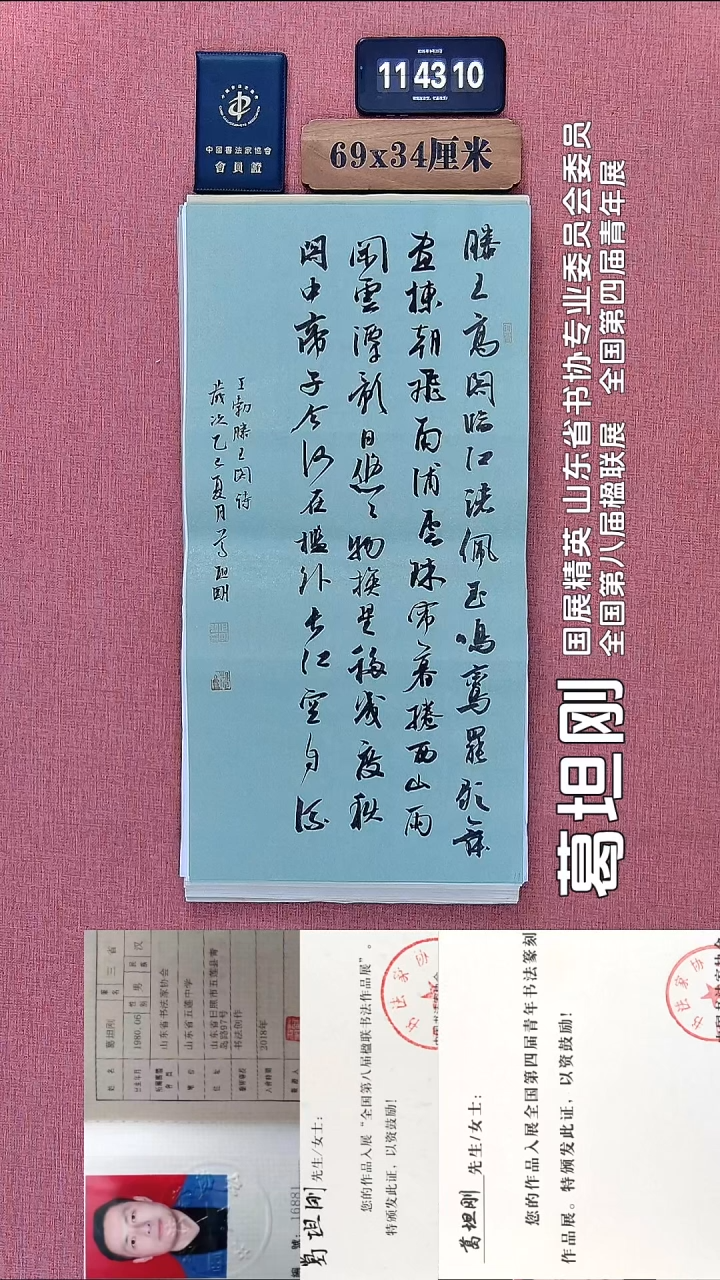 中國書法家協會
會員證
11 43 10
69x34厘米
滕王高閣臨江渚佩玉鳴鸞罷歌舞
画棟朝飛南浦雲珠帘暮捲西山雨
閑雲潭影日悠々物換星移幾度秋
閣中帝子今何在檻外長江空自流
王勃滕王閣詩
歲次乙巳夏月葛坦剛
国展精英 山东省书协专业委员会委员
全国第八届楹联展 全国第四届青年展
葛坦刚
姓名 葛坦刚
1980.06 性别 男 民族 汉
山东省书法家协会
山东省五莲中学
山东省日照市五莲县青
岛路97号
书法创作
2018年
編號：16881
葛坦刚 先生/女士：
您的作品入展“全国第八届楹联书法作品展”。
特颁发此证，以资鼓励！
葛坦刚 先生/女士：
您的作品入展全国第四届青年书法篆刻
作品展。特颁发此证，以资鼓励！